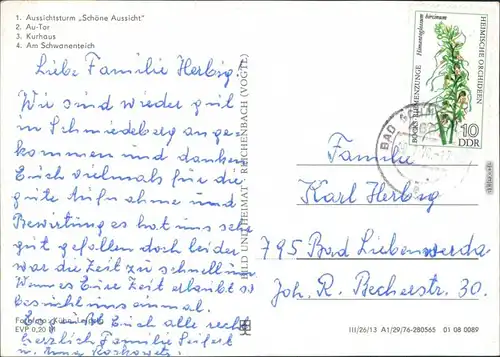 1. Aussichtsturm „Schöne Aussicht"
2. Au-Tor
3. Kurhaus
4. Am Schwanenteich
Liebe Familie Herbig,
Wir sind wieder gut
in Schmiedeberg ange
kommen und danken
Euch vielmals für die
gute Aufnahme und
Bewirtung es hat uns sehr
gut gefallen doch leider
war die Zeit zu schnell um
Wenn es Eure Zeit erlaubt so
besucht uns einmal.
Es grüßt Euch alle recht
herzlich Familie Seifert
u. Anna
EVP 0,20 M
BILD UND HEIMAT · REICHENBACH (VOGTL)
Himantoglossum hircinum
BOCKS-RIEMENZUNGE
HEIMISCHE ORCHIDEEN
10
DDR
BAD
Familie
Karl Herbig
795 Bad Liebenwerda
Joh. R. Becherstr. 30.
III/26/13 A1/29/76-280565 01 08 0089